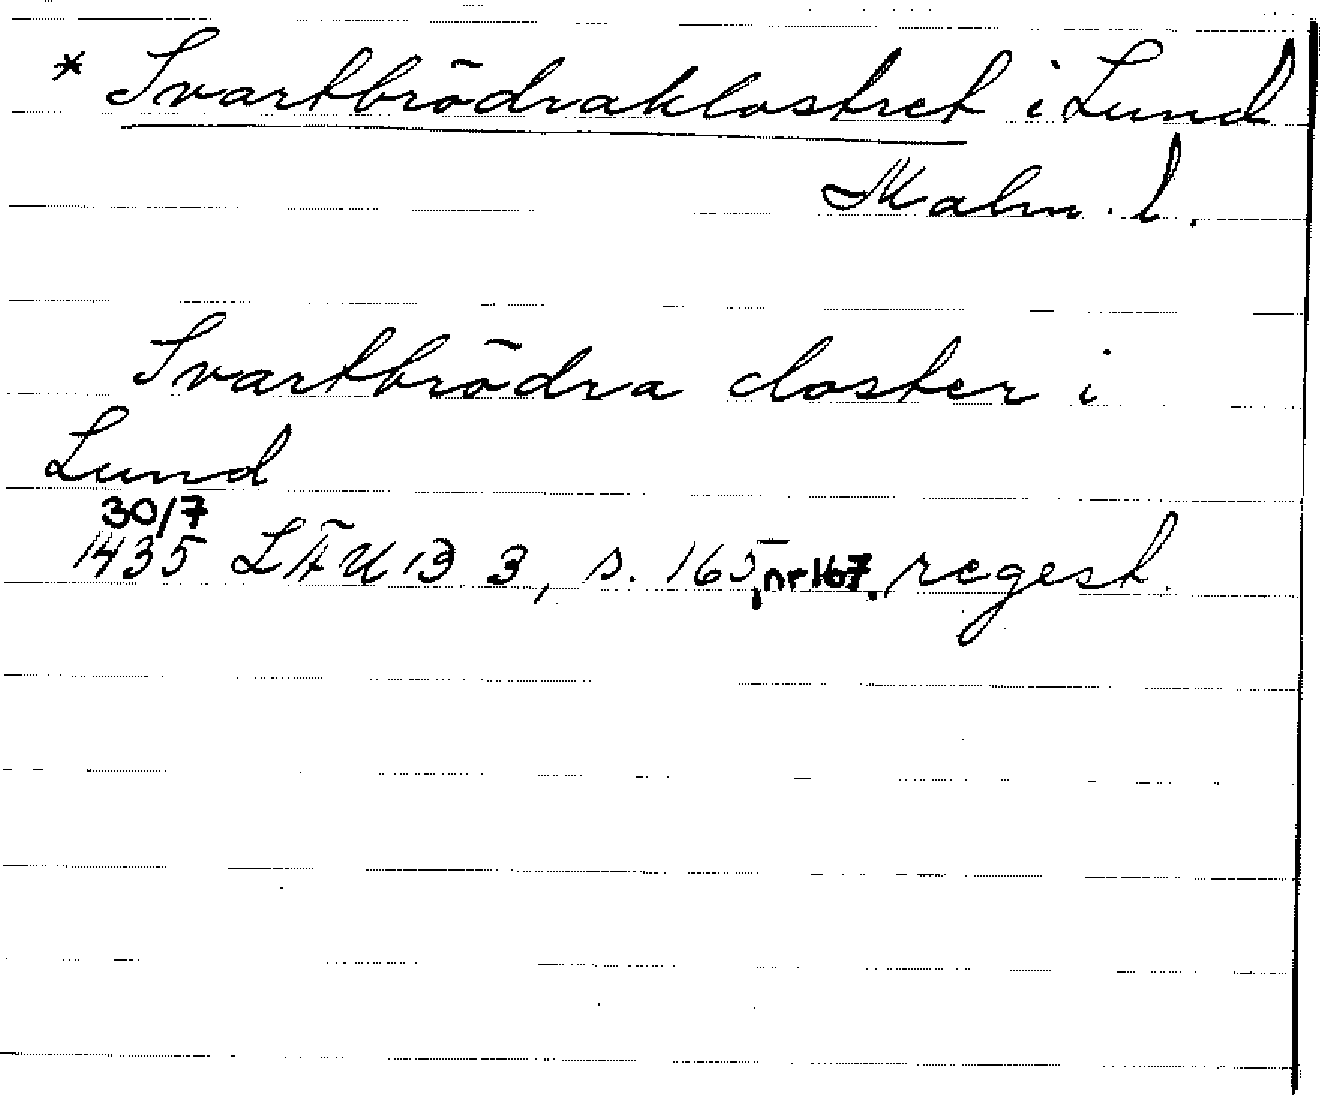 * Svartbrödraklostret i Lund
Malm. l.
Svartbrödra closter i
Lund
30/7
1435 LÄUB 3, s. 165, nr 167. regest.